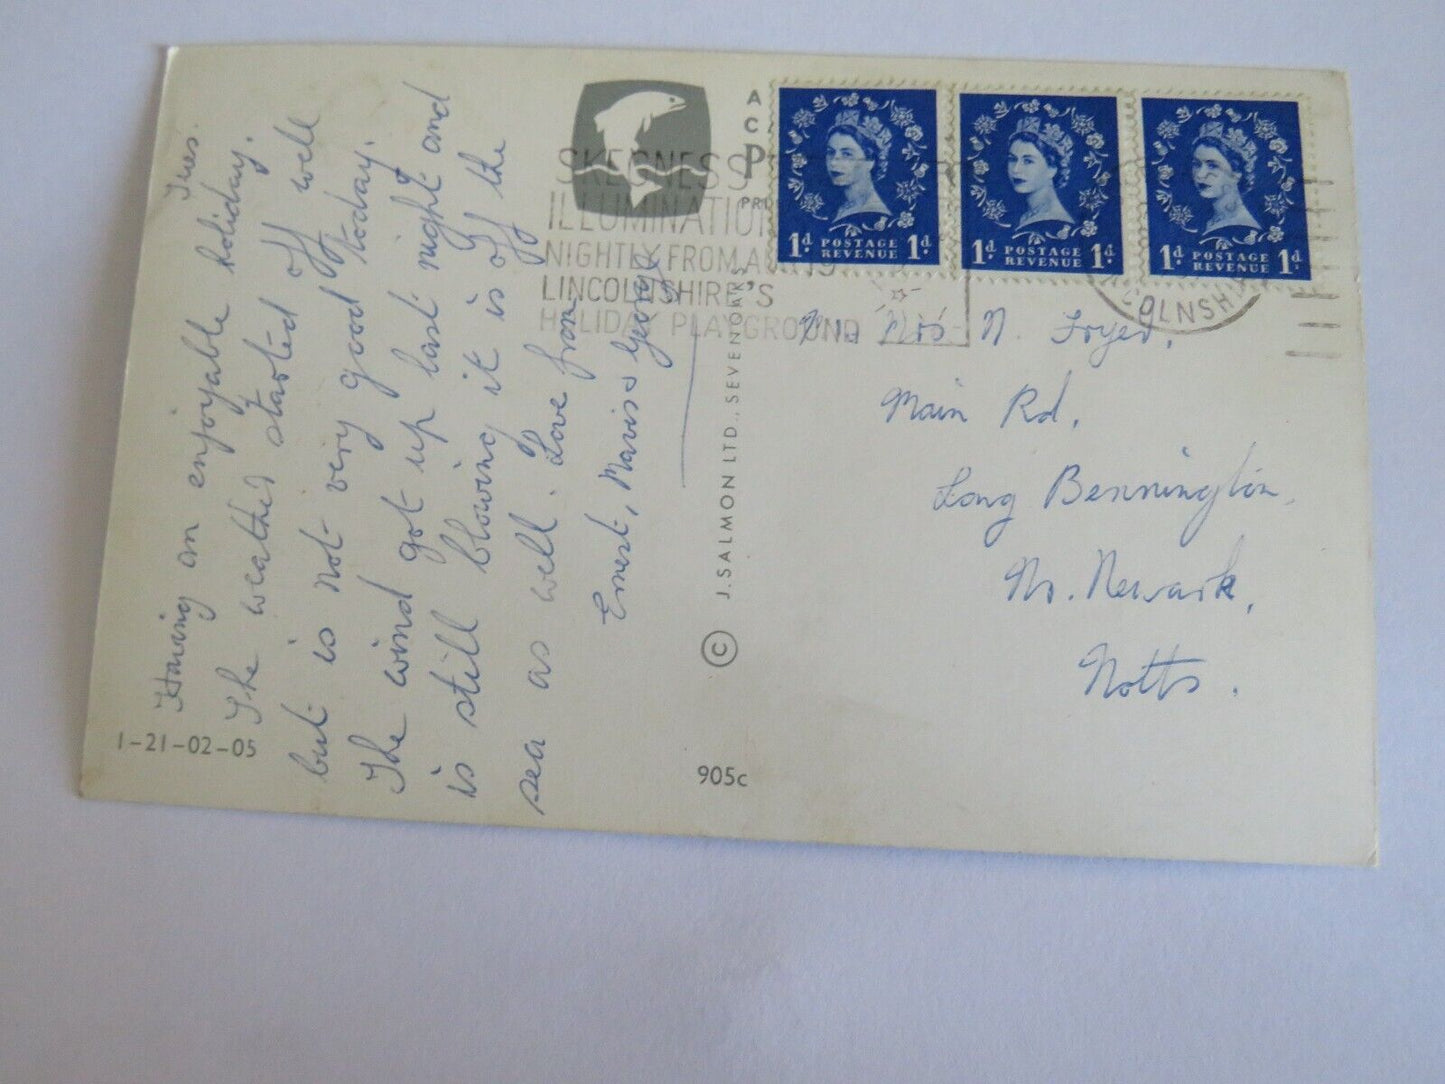 Tues.
Having an enjoyable holiday.
The weather started off well
but is not very good today.
The wind got up last night and
is still blowing it is off the
sea as well. Love from
Ernest, Mavis & George
1-21-02-05
A
C
P
PRI
SKEGNESS
ILLUMINATIO
NIGHTLY FROM
LINCOLNSHIRE'S
HOLIDAY PLAYGROUND
1d POSTAGE REVENUE 1d
1d POSTAGE REVENUE 1d
1d POSTAGE REVENUE 1d
OLNSHI
© J. SALMON LTD., SEVENOAKS
905c
Mrs N. Fryer,
Main Rd,
Long Bennington,
Nr. Newark,
Notts.